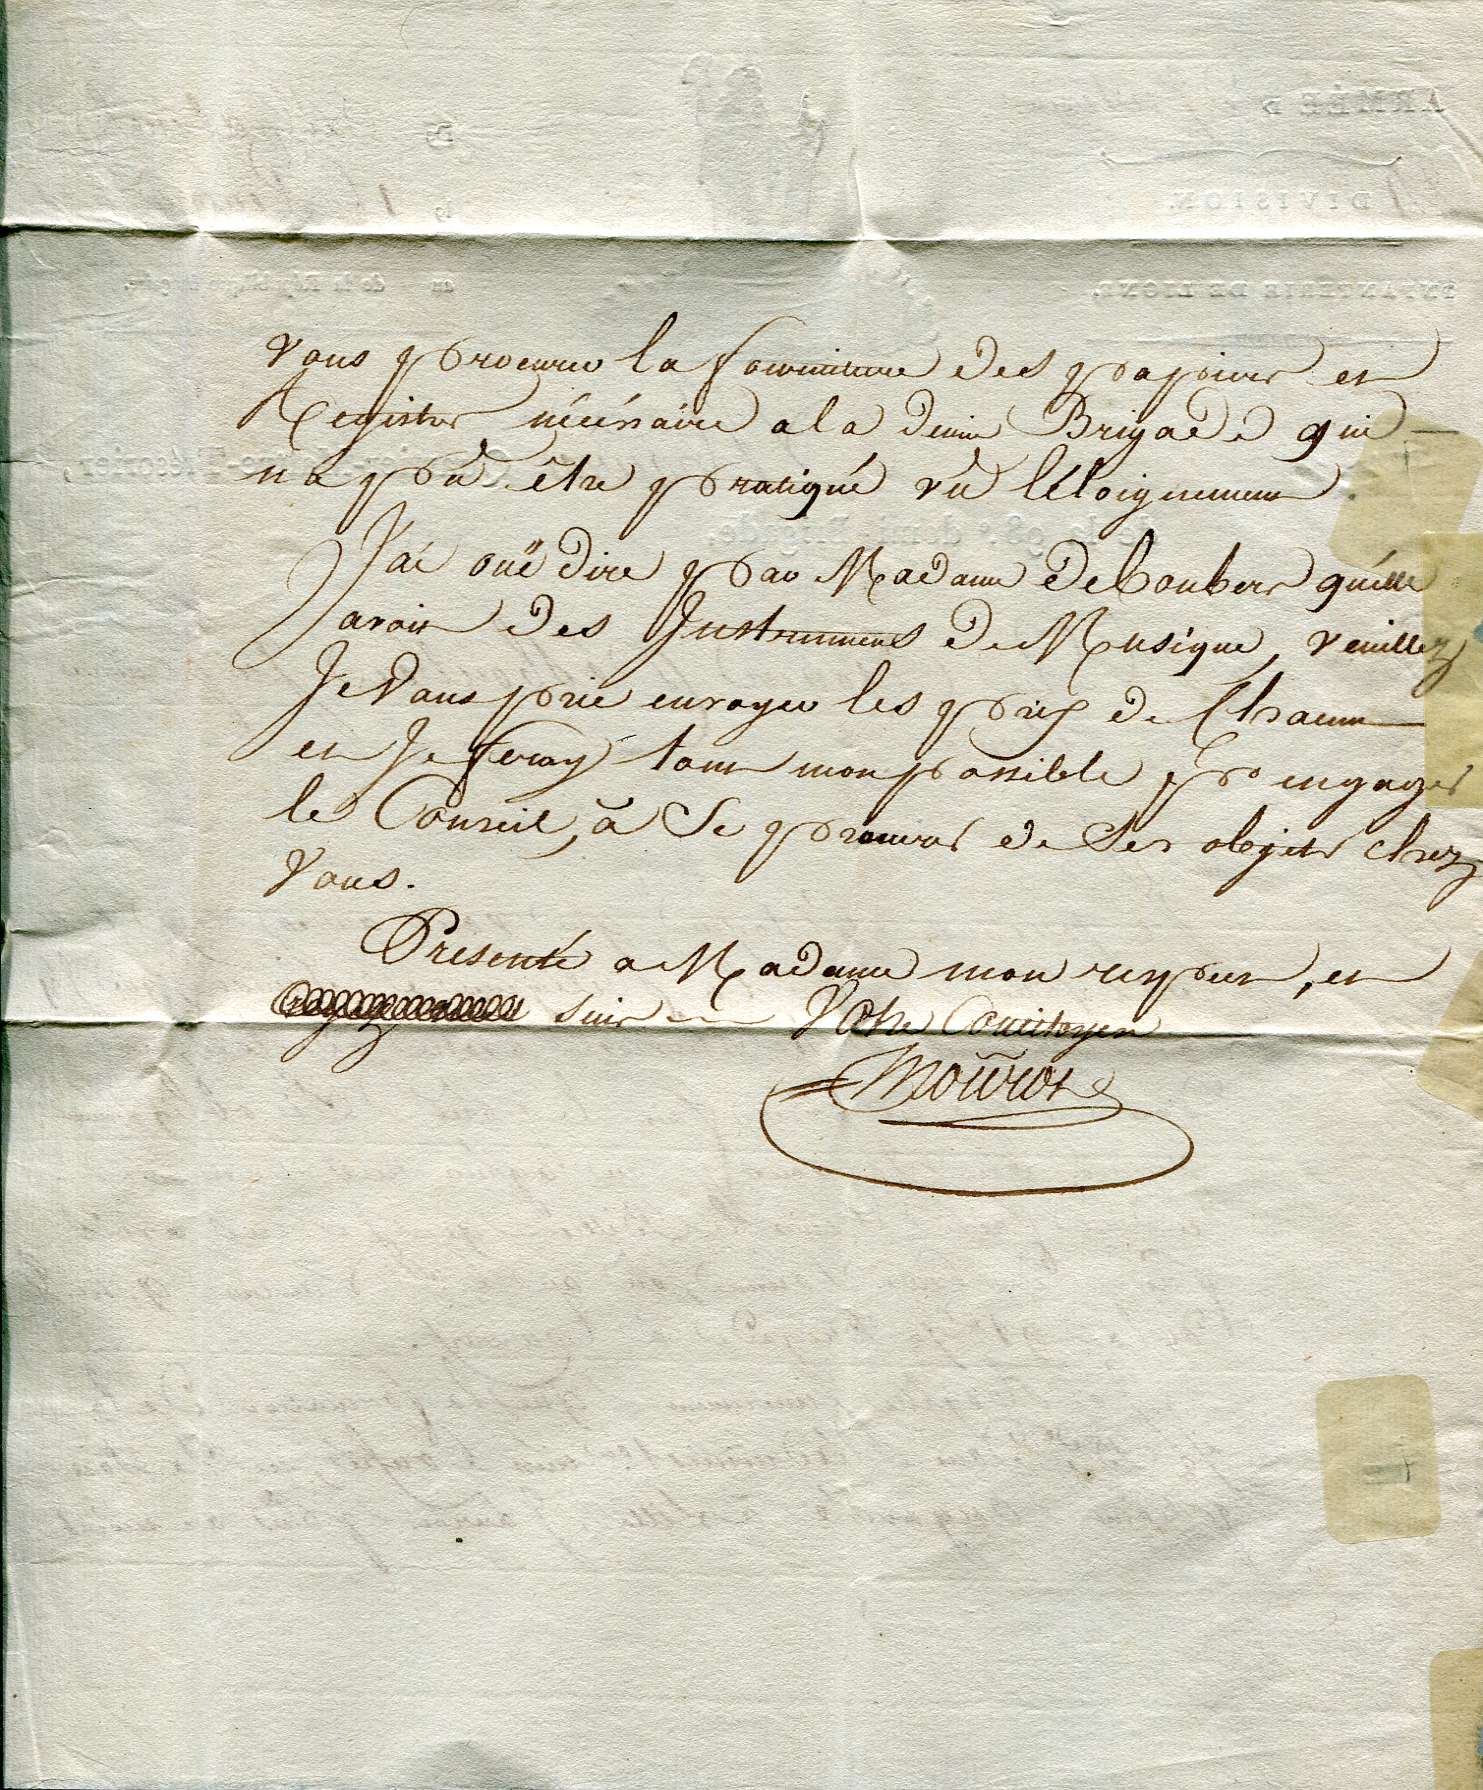 Vous procurer la fourniture des papiers et
Registres nécéssaire a la demie Brigade qui
n'a pû être pratiqué vû léloignement.
J'ai ouë dire par Madame deboubers qu'elle
avoit des Instrumens de Musique, veuillez
Je Vous prie envoyer les prix de Chacun
et Je feray tout mon possible pr engager
le Conseil, à Se procurer de Ses objets chez
Vous.
Presenté a Madame mon respect, et
suis Votre Concitoyen
Moürot
ARMÉE D
DIVISION.
INFANTERIE DE LIGNE.